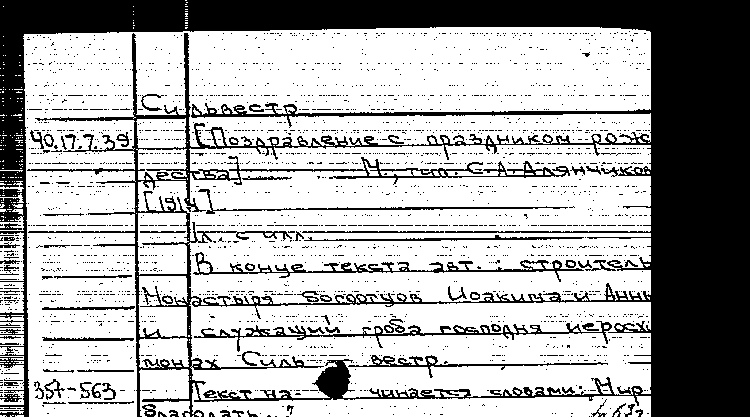 Сильвестр
40.17.7.39 [Поздравление с праздником рож
дества] М., тип. С.А. Алянчиков
[1914]
1л. с илл.
В конце текста авт.: строитель
Монастыря Богоотцов Иоакима и Анны
и служащий гроба господня иеросхи
монах Сильвестр.
357-563 Текст начинается словами: Мир
благодать..."